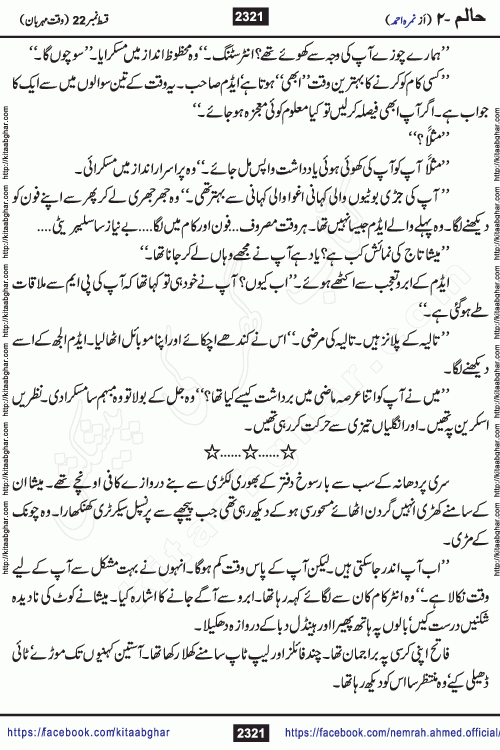 حالم -۲ (از نمرہ احمد)
2321
قسط نمبر 22 (وقت مہربان)
’’ہمارے چوزے آپ کی وجہ سے کھوئے تھے؟ انٹرسٹنگ۔‘‘ وہ محظوظ انداز میں مسکرایا۔ ’’سوچوں گا۔‘‘
’’کسی کام کو کرنے کا بہترین وقت ’’ابھی‘‘ ہوتا ہے‘ ایڈم صاحب۔ یہ وقت کے تین سوالوں میں سے ایک کا
جواب ہے۔ اگر آپ ابھی فیصلہ کر لیں تو کیا معلوم کوئی معجزہ ہو جائے۔‘‘
’’مثلاً؟‘‘
’’مثلاً آپ کو آپ کی کھوئی ہوئی یادداشت واپس مل جائے۔‘‘ وہ پراسرار انداز میں مسکرائی۔
’’آپ کی جڑی بوٹیوں والی کہانی اغوا والی کہانی سے بہتر تھی۔‘‘ وہ جھرجھری لے کر پھر سے اپنے فون کو
دیکھنے لگا۔ وہ پہلے والے ایڈم جیسا نہیں تھا۔ ہر وقت مصروف... فون اور کام میں لگا.... بے نیاز سا سلیبریٹی....
’’میشا تاج کی نمائش کب ہے؟ یاد ہے آپ نے مجھے وہاں لے کر جانا تھا۔‘‘
ایڈم کے ابرو تعجب سے اکٹھے ہوئے۔ ’’اب کیوں؟ آپ نے خود ہی تو کہا تھا کہ آپ کی پی ایم سے ملاقات
طے ہو گئی ہے۔‘‘
’’تالیہ کے پلانز ہیں۔ تالیہ کی مرضی۔‘‘ اس نے کندھے اچکائے اور اپنا موبائل اٹھا لیا۔ ایڈم الجھ کے اسے
دیکھنے لگا۔
’’میں نے آپ کو اتنا عرصہ ماضی میں برداشت کیسے کیا تھا؟‘‘ وہ جل کے بولا تو وہ مبہم سا مسکرا دی۔ نظریں
اسکرین پہ تھیں۔ اور انگلیاں تیزی سے حرکت کر رہی تھیں۔
☆......☆......☆
سری پردھانہ کے سب سے بارسوخ دفتر کے بھوری لکڑی سے بنے دروازے کافی اونچے تھے۔ میشا ان
کے سامنے کھڑی انہیں گردن اٹھائے مسحور سی ہو کے دیکھ رہی تھی جب پیچھے سے پرنسپل سیکرٹری کھنکھارا۔ وہ چونک
کے مڑی۔
’’اب آپ اندر جا سکتی ہیں۔ لیکن آپ کے پاس وقت کم ہوگا۔ انہوں نے بہت مشکل سے آپ کے لیے
وقت نکالا ہے۔‘‘ وہ انٹرکام کان سے لگائے کہہ رہا تھا۔ ابرو سے آگے جانے کا اشارہ کیا۔ میشا نے کوٹ کی نادیدہ
شکنیں درست کیں‘ بالوں پہ ہاتھ پھیرا اور ہینڈل دبا کے دروازہ دھکیلا۔
فاتح اپنی کرسی پہ براجمان تھا۔ چند فائلز اور لیپ ٹاپ سامنے کھلا رکھا تھا۔ آستین کہنیوں تک موڑے‘ ٹائی
ڈھیلی کیے‘ وہ منتظر سا اس کو دیکھ رہا تھا۔
https://facebook.com/kitaabghar
2321
https://facebook.com/nemrah.ahmed.official/
http://kitaabghar.com
http://kitaabghar.com